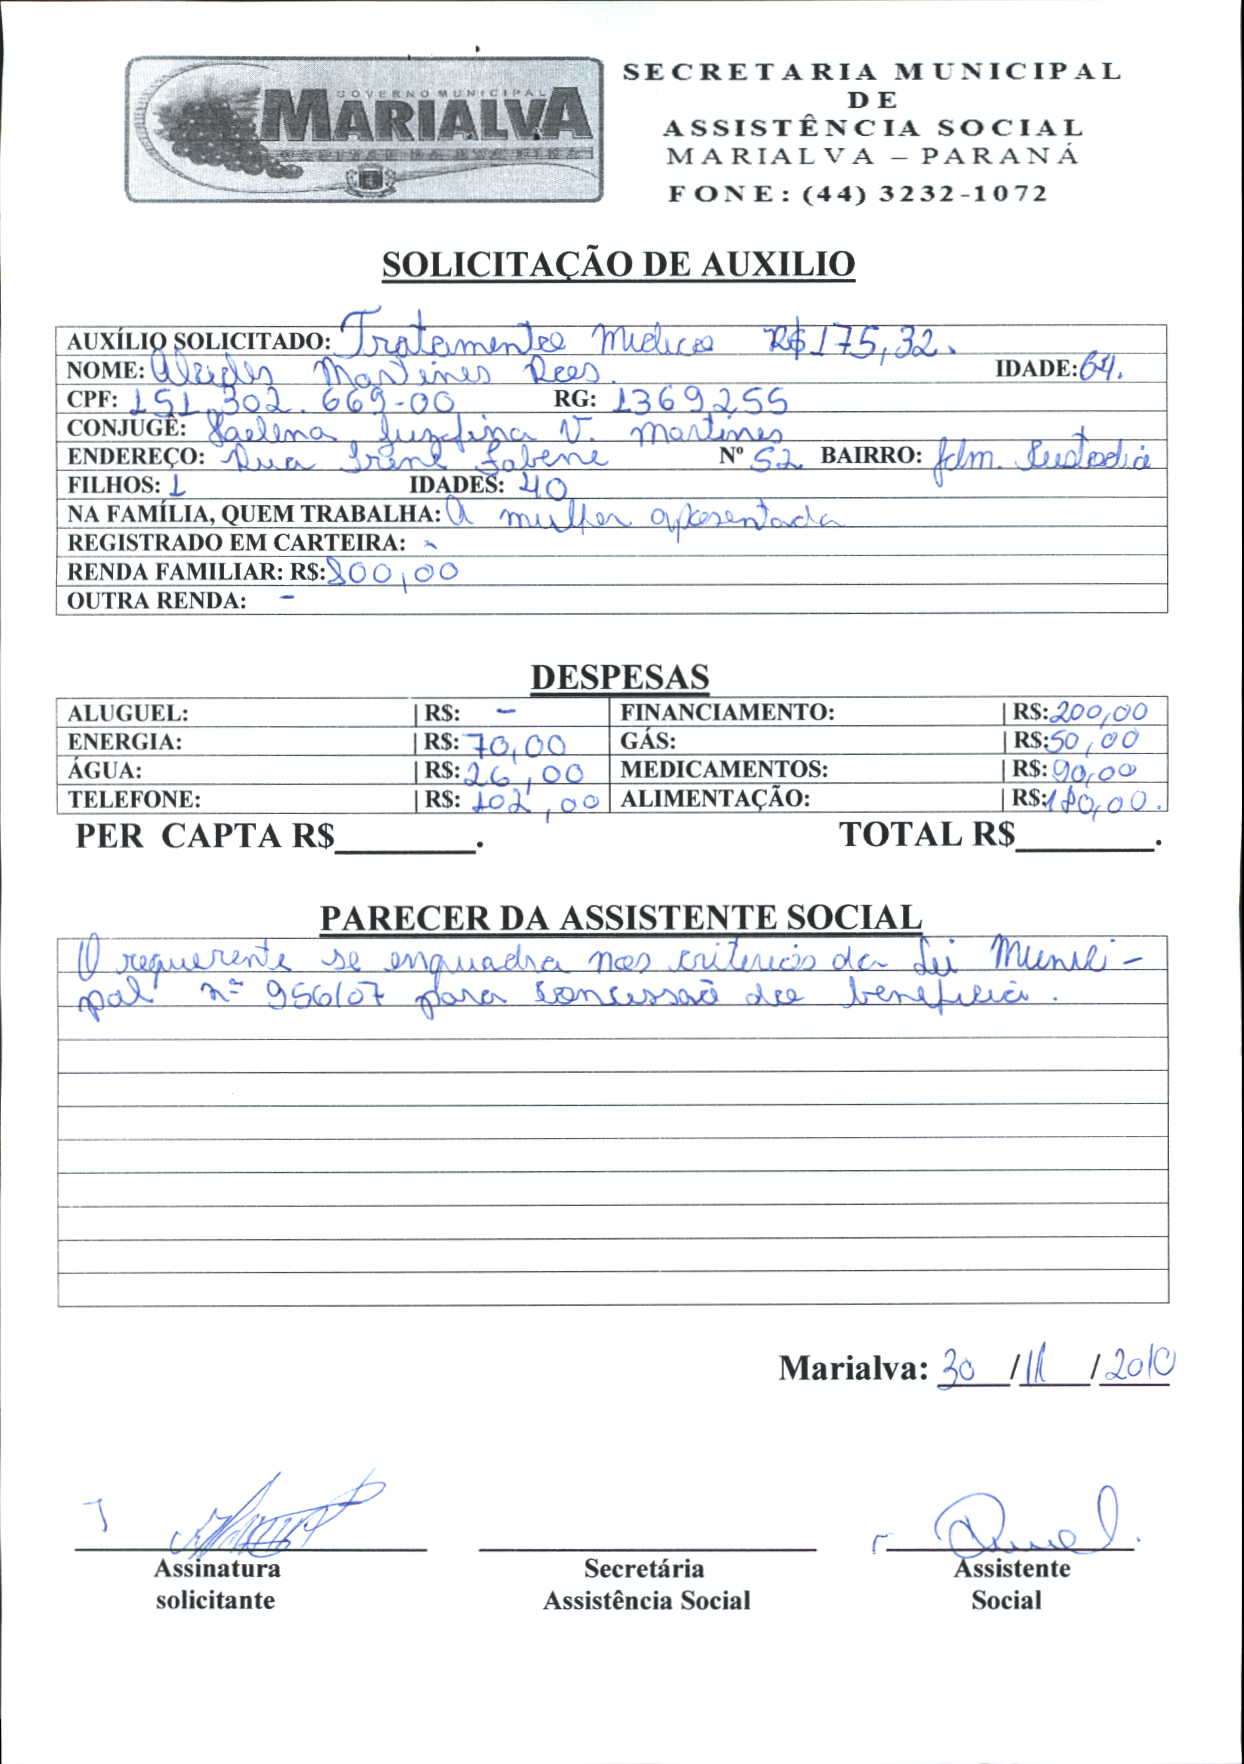 GOVERNO MUNICIPAL
MARIALVA
SECRETARIA MUNICIPAL
DE
ASSISTÊNCIA SOCIAL
MARIALVA – PARANÁ
FONE: (44) 3232-1072
SOLICITAÇÃO DE AUXILIO
AUXÍLIO SOLICITADO: Tratamento Médico R$ 175,32.
NOME: Alcides Martines Rees. IDADE: 64.
CPF: 151.302.669-00 RG: 1369255
CONJUGÊ: Juzefina V. Martines
ENDEREÇO: Rua Irene Nº 52 BAIRRO: Jdm. Custodia
FILHOS: 1 IDADES: 40
NA FAMÍLIA, QUEM TRABALHA: A mulher aposentada
REGISTRADO EM CARTEIRA: -
RENDA FAMILIAR: R$: 800,00
OUTRA RENDA: -
DESPESAS
ALUGUEL: | R$: - FINANCIAMENTO: | R$: 200,00
ENERGIA: | R$: 70,00 GÁS: | R$: 50,00
ÁGUA: | R$: 26,00 MEDICAMENTOS: | R$: 90,00
TELEFONE: | R$: 102,00 ALIMENTAÇÃO: | R$: 180,00.
PER CAPTA R$________. TOTAL R$_______.
PARECER DA ASSISTENTE SOCIAL
O requerente se enquadra nos critérios da Lei Munici-
pal nº 956/07 para concessão do benefício.
Marialva: 30 / 11 / 2010
Assinatura Secretária Assistente
solicitante Assistência Social Social